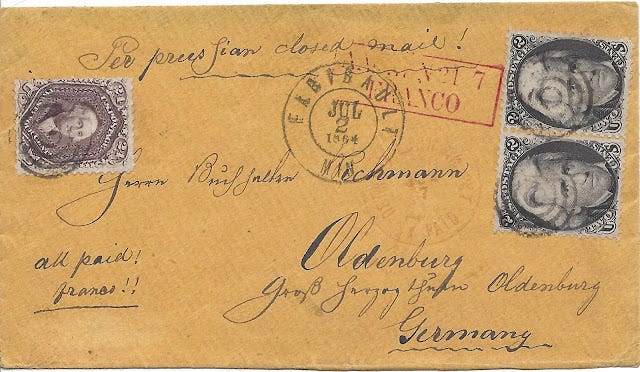 Per preussian closed mail!
21 7
FRANCO
FARIBAULT
JUL
2
1864
MIN
Herrn Buchhalter
all paid!
franco!!
PAID
Oldenburg
Groß Herzogthum Oldenburg
Germany